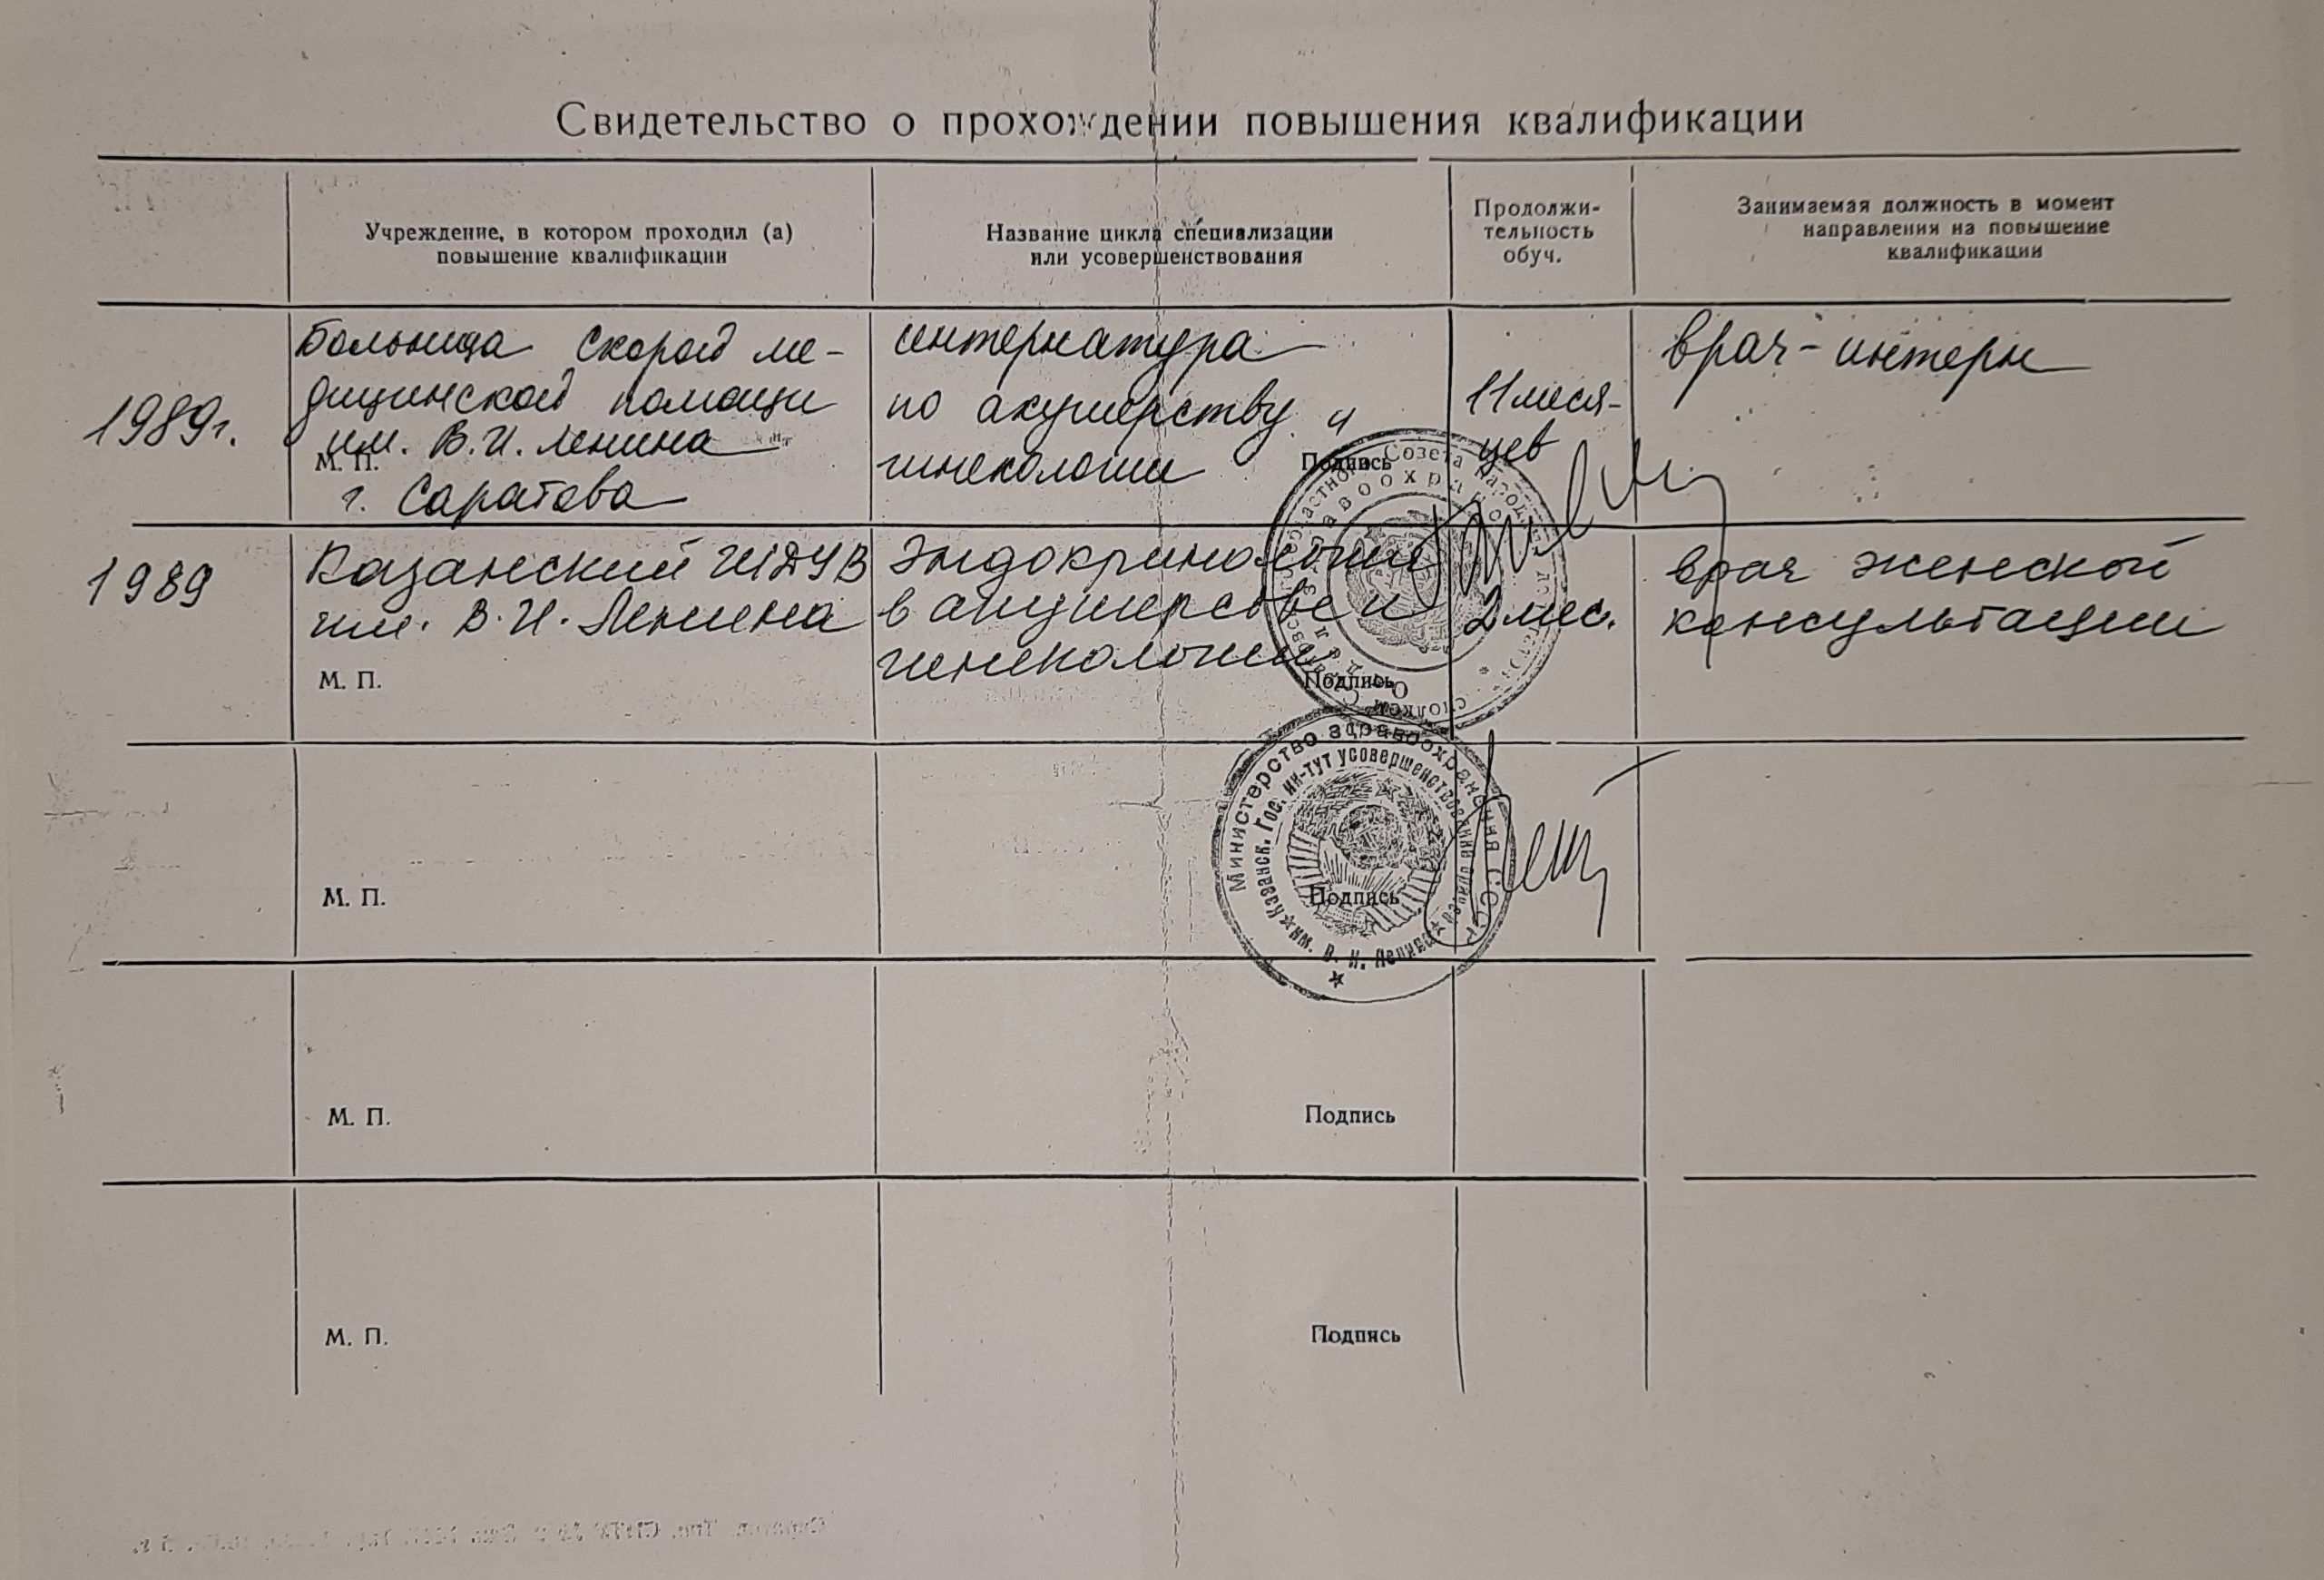 Свидетельство о прохождении повышения квалификации
Учреждение, в котором проходил (а)
повышение квалификации
Название цикла специализации
или усовершенствования
Продолжи-
тельность
обуч.
Занимаемая должность в момент
направления на повышение
квалификации
1989г.
Больница Скорой ме-
дицинской помощи
им. В.И. Ленина
М. П.
г. Саратова
интернатура
по акушерству и
гинекологии
Подпись
11 меся-
цев
врач-интерн
1989
Казанский ГИДУВ
им. В.И. Ленина
М. П.
Эндокринология
в акушерстве и
гинекологии
Подпись
2 мес.
врач женской
консультации
М. П.
Министерство здравоохранения СССР
Казанск. Гос. ин-тут усовершенствования врачей
им. В. И. Ленина
Подпись
М. П.
Подпись
М. П.
Подпись